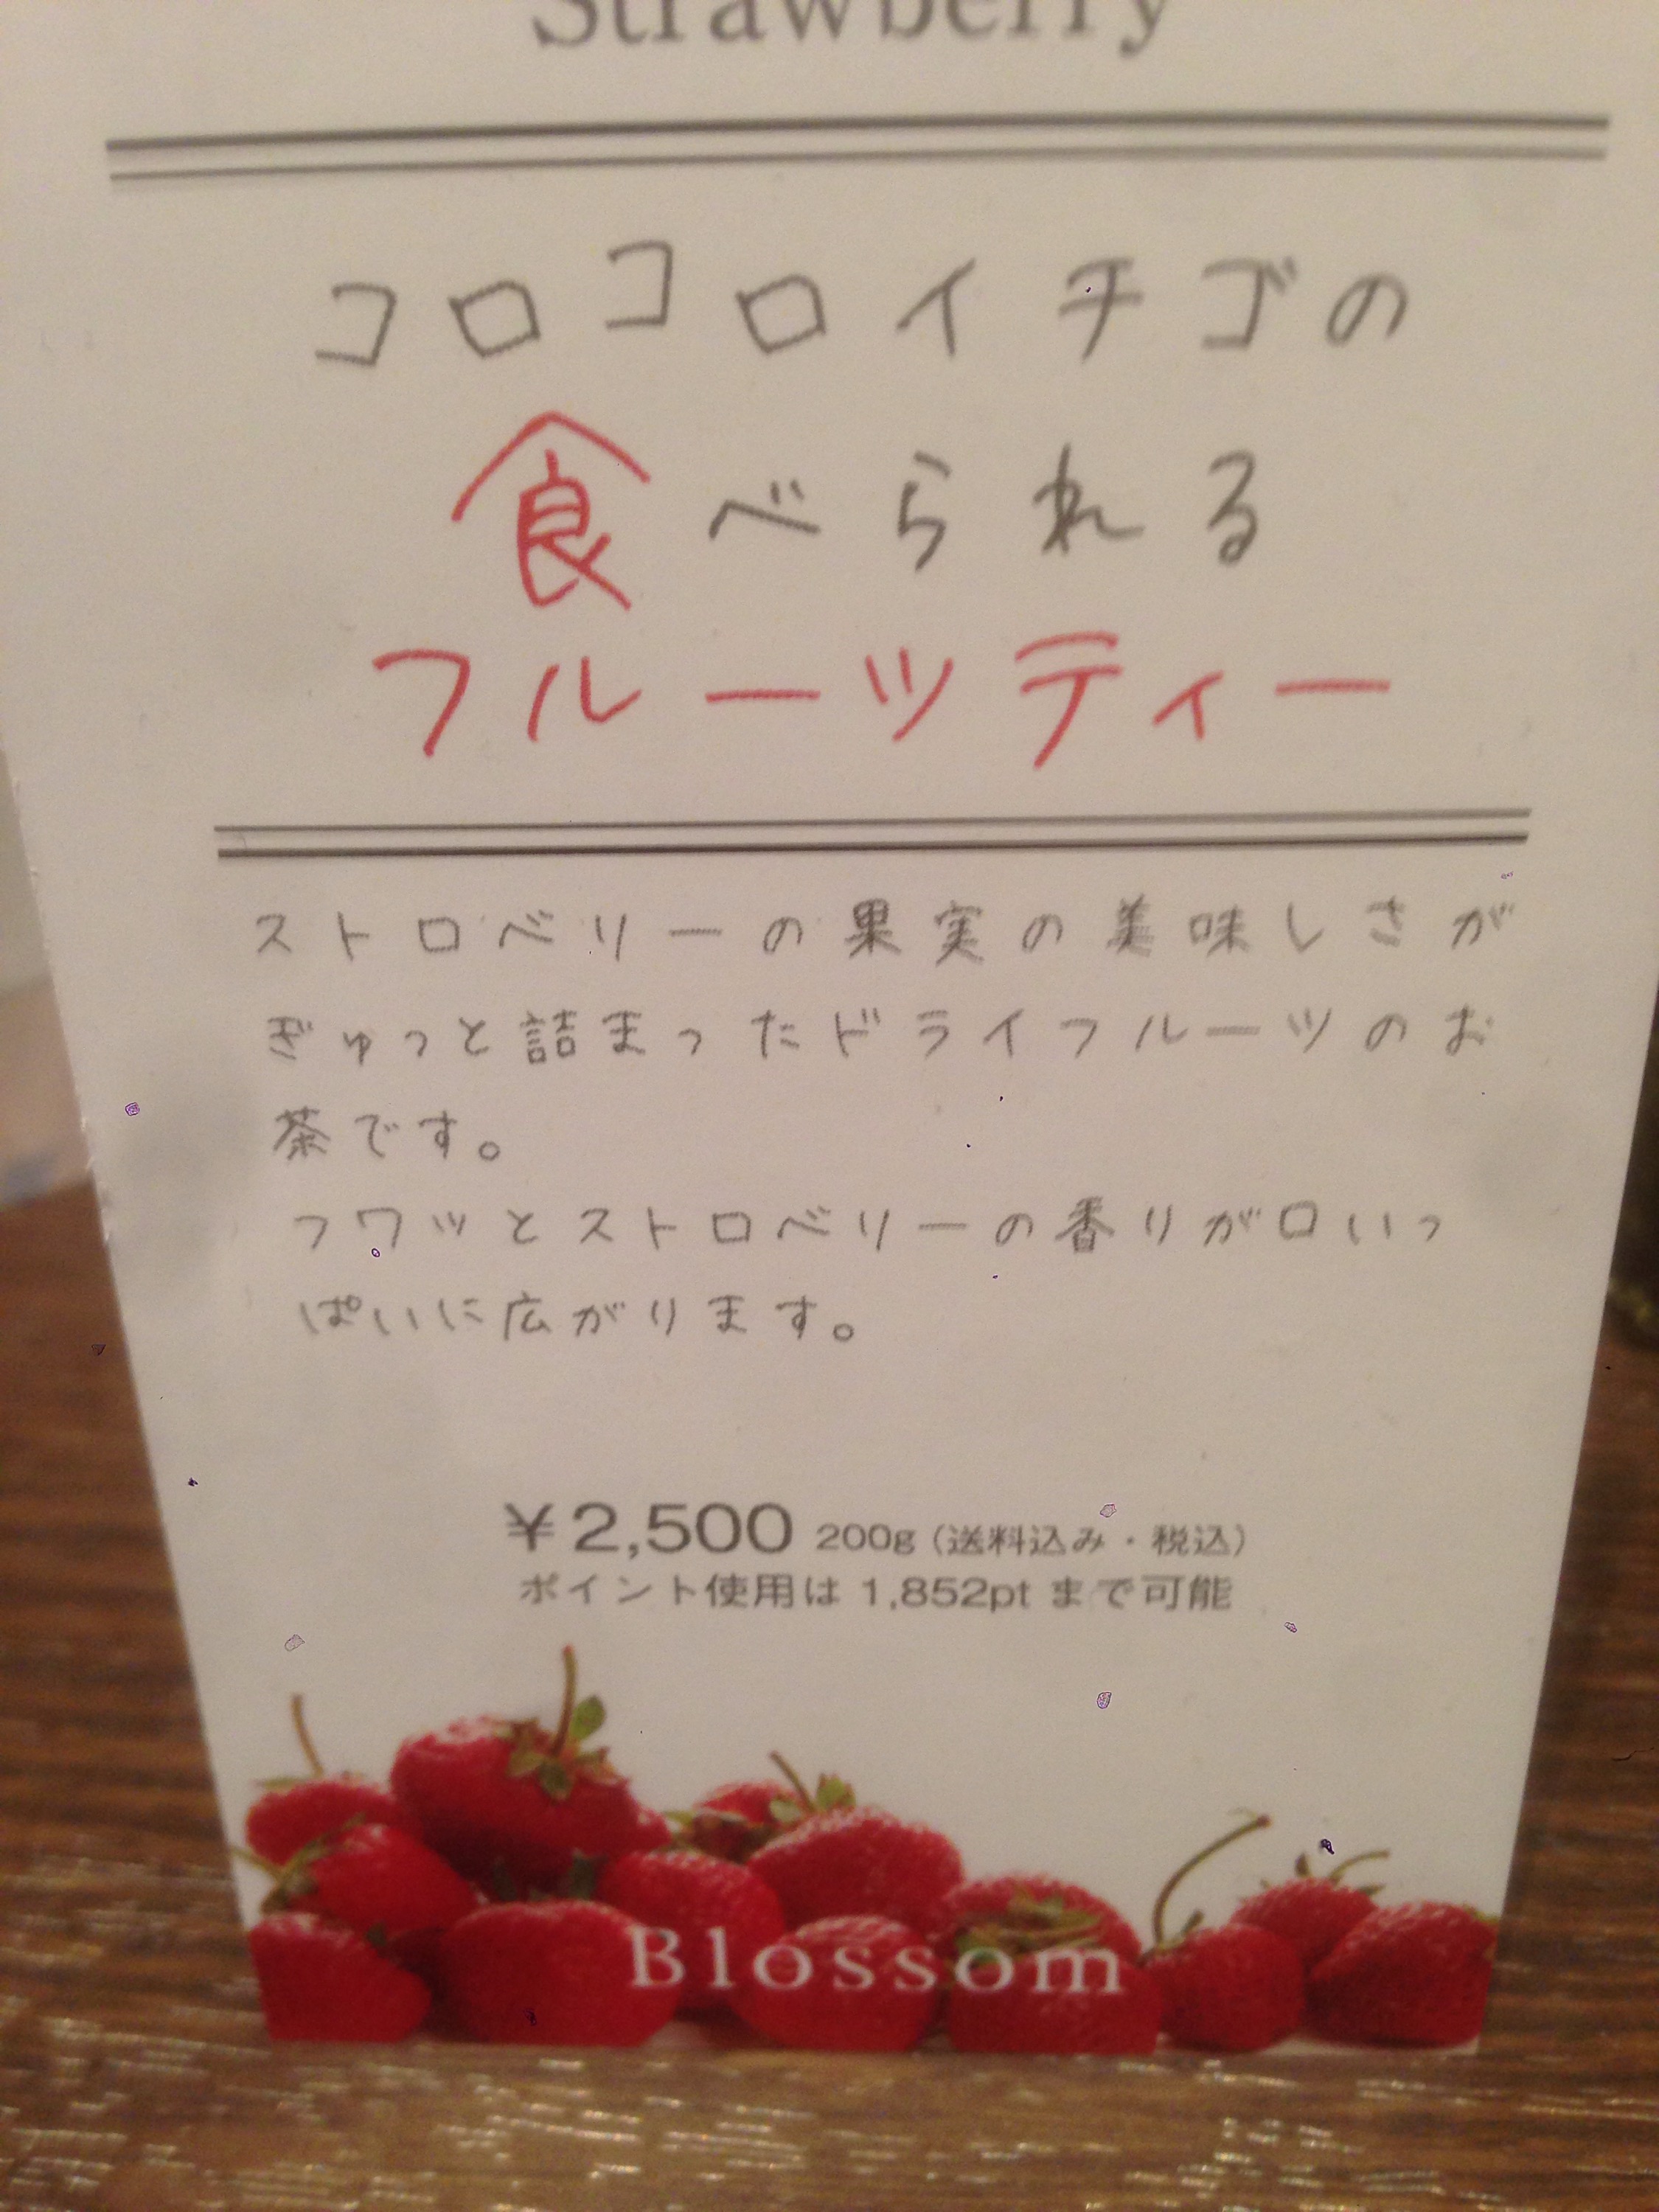 Strawberry
コロコロイチゴの
食べられる
フルーツティー
ストロベリーの果実の美味しさが
ぎゅっと詰まったドライフルーツのお
茶です。
フワッとストロベリーの香りが口いっ
ぱいに広がります。
¥2,500 200g (送料込み・税込)
ポイント使用は 1,852pt まで可能
Blossom